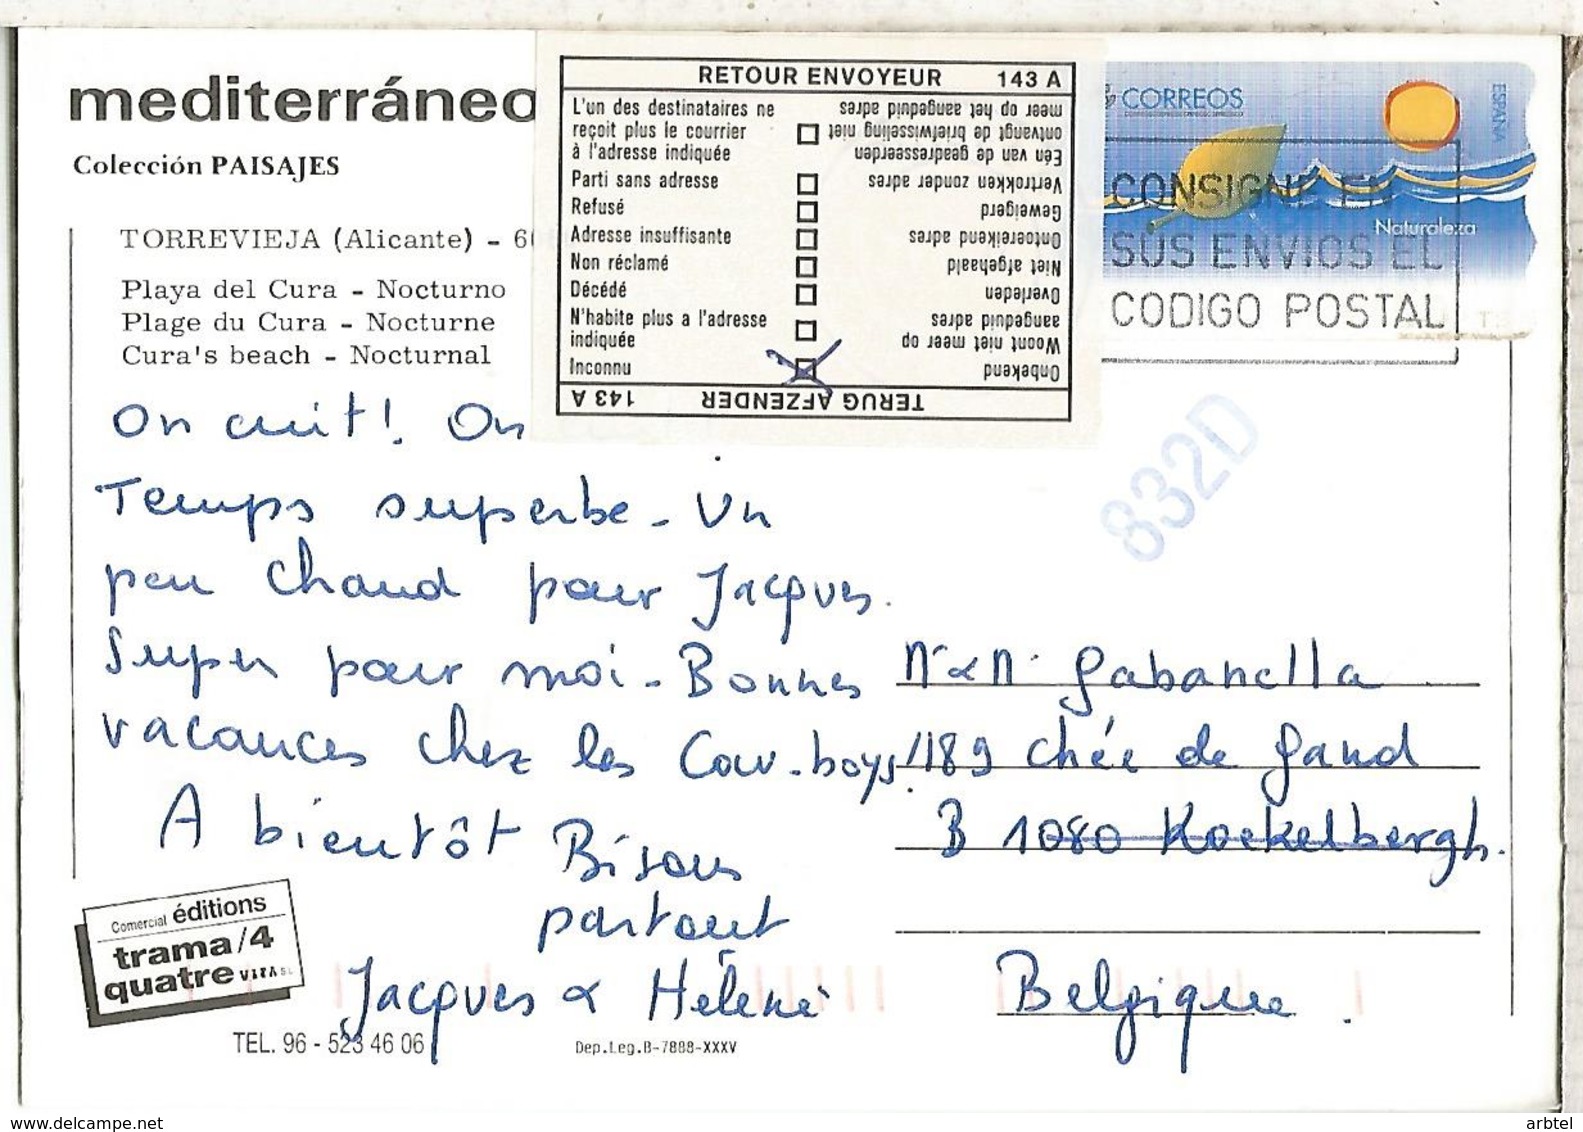 mediterráneo
Colección PAISAJES
TORREVIEJA (Alicante) - 6
Playa del Cura - Nocturno
Plage du Cura - Nocturne
Cura's beach - Nocturnal
RETOUR ENVOYEUR 143 A
L'un des destinataires ne
reçoit plus le courrier
à l'adresse indiquée
Parti sans adresse
Refusé
Adresse insuffisante
Non réclamé
Décédé
N'habite plus a l'adresse
indiquée
Inconnu
TERUG AFZENDER 143 A
Onbekend
Woont niet meer op
aangeduid adres
Overleden
Niet afgehaald
Ontoereikend adres
Geweigerd
Vertrokken zonder adres
Eén van de geadresseerden
ontvangt de briefwisseling niet
meer op het aangeduid adres
CORREOS
ESPAÑA
Naturaleza
CONSIGNE EN
SUS ENVIOS EL
CODIGO POSTAL
832D
On cuit! On
Temps superbe - Un
peu chaud pour Jacques.
Super pour moi - Bonnes
vacances chez les Cow-boys!
A bientôt Bisous
partout
Jacques & Hélène
M & M Gabanella
189 Chée de Gand
B 1080 Koekelbergh.
Belgique.
Comercial éditions
trama/4
quatre VIZA S.L.
TEL. 96 - 523 46 06
Dep.Leg.B-7888-XXXV
arbtel